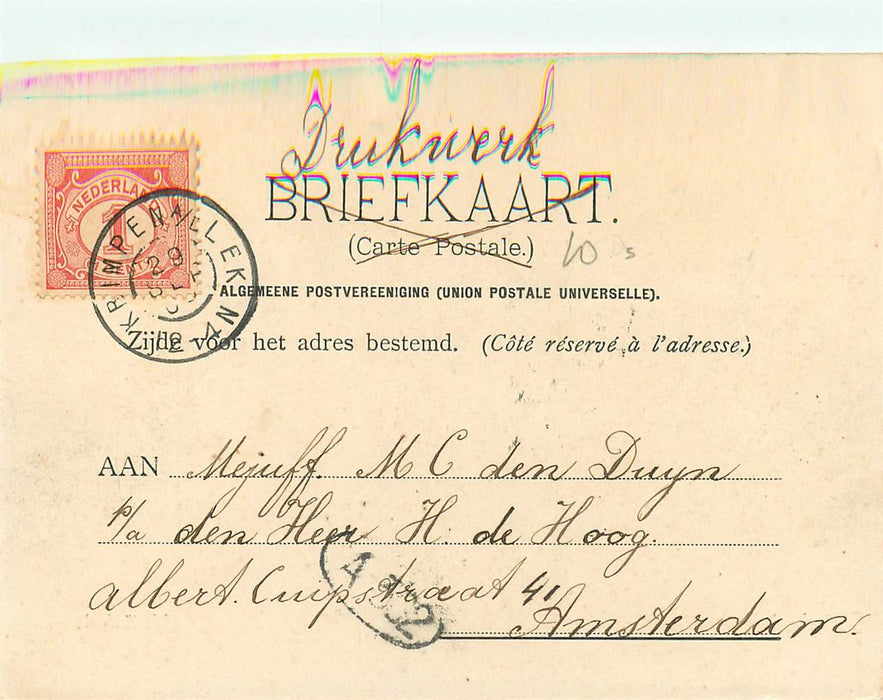 Drukwerk
BRIEFKAART.
(Carte Postale.)
10
ALGEMEENE POSTVEREENIGING (UNION POSTALE UNIVERSELLE).
Zijde voor het adres bestemd. (Côté réservé à l'adresse.)
NEDERLAND
1
KRIMPEN A/D LEK
29
AAN Mejuff. M C den Duyn
p/a den Heer H. de Hoog
Albert. Cuipstraat 41
Amsterdam.